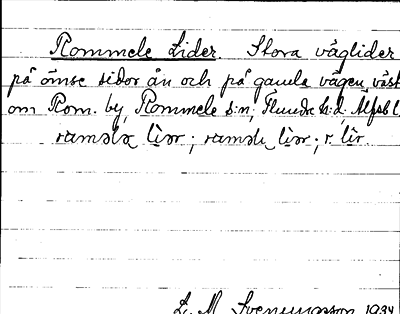 Rommele Lider. Stora våglider
på ömse sidor ån och på gamla vägen väst
om Rom. by, Rommele s:n, Flundre h:d, Älfsb l
ramələ līər; raməlı līər; r. līr.
L. M. Svenungsson 1934